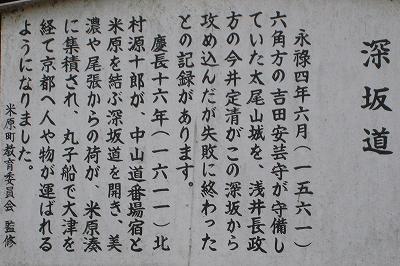 深坂道
永禄四年六月(一五六一)
六角方の吉田安芸守が守備し
ていた太尾山城を、浅井長政
方の今井定清がこの深坂から
攻め込んだが失敗に終わった
との記録があります。
慶長十六年(一六一一)北
村源十郎が、中山道番場宿と
米原を結ぶ深坂道を開き、美
濃や尾張からの荷が、米原湊
に集積され、丸子船で大津を
経て京都へ人や物が運ばれる
ようになりました。
米原町教育委員会 監修